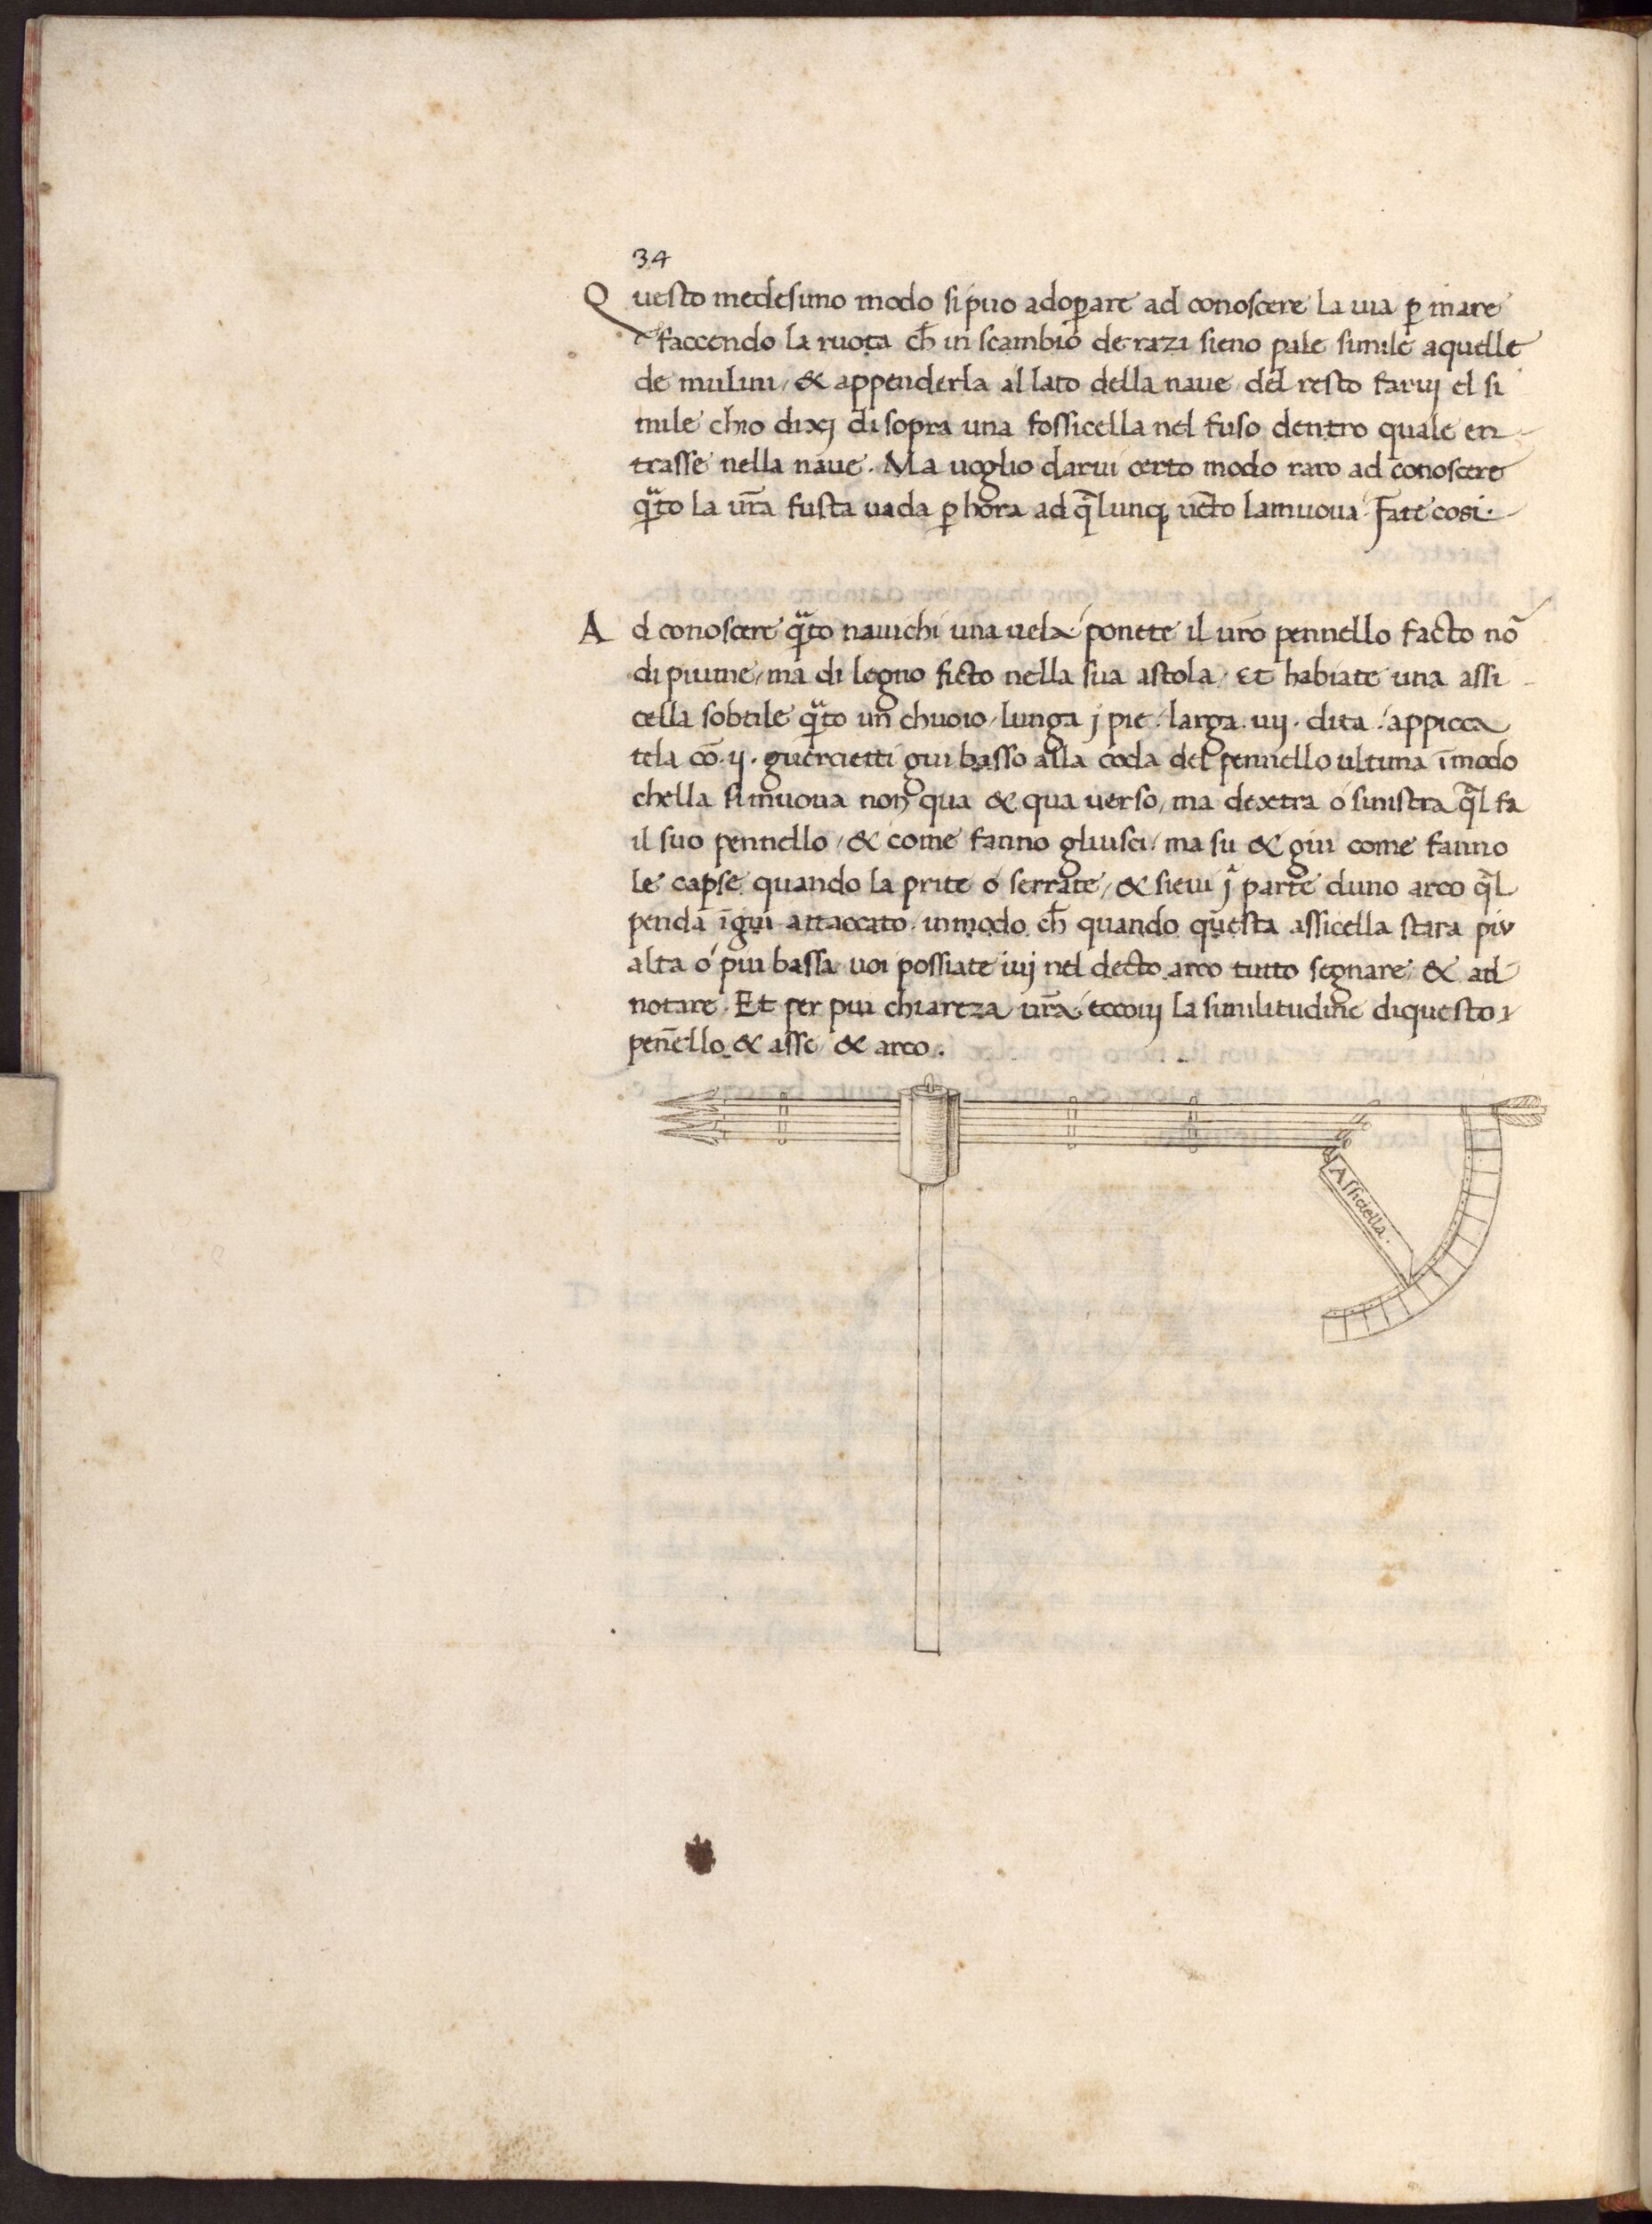 34
Questo medesimo modo si puo adoꝑare ad conoscere la uia ꝑ mare
faccendo la ruota ch̄ in scambio de razi sieno pale simile aquelle
de mulini / & appenderla al lato della naue / del resto faruj el si
mile chio dixj di sopra una fossicella nel fuso dentro quale en
trasse nella naue . Ma uoglio darui certo modo raro ad conoscere
qͣ̄to la ur̄a fusta uada ꝑ hora ad qͣ̄lunqꝫ uēto lamuoua . Fate cosi .
Ad conoscere qͣ̄to nauichi una uela / ponete il ur̄o pennello facto nō
di piume / ma di legno ficto nella sua astola / Et habiate una assi
cella sobtile qͣ̄to un chuoio / lunga j pie / larga . iiij . dita / appicca
tela cō . ij . guercietti giu basso alla coda del pennello ultima ī modo
chella si muoua non qua & qua uerso / ma dextra o sinistra qͣ̄l fa
il suo pennello / & come fanno gliusci / ma su & giu come fanno
le capse quando la prite o serrate / & sieui jͣ parte duno arco qͣ̄l
penda īgiu attaccato in modo ch̄ quando questa assicella stara piu
alta o piu bassa uoi possiate iuj nel decto arco tutto segnare & ad
notare . Et per piu chiareza ur̄a eccouj la similitudine di questo
pen̄ello & asse & arco .
Assiciella .